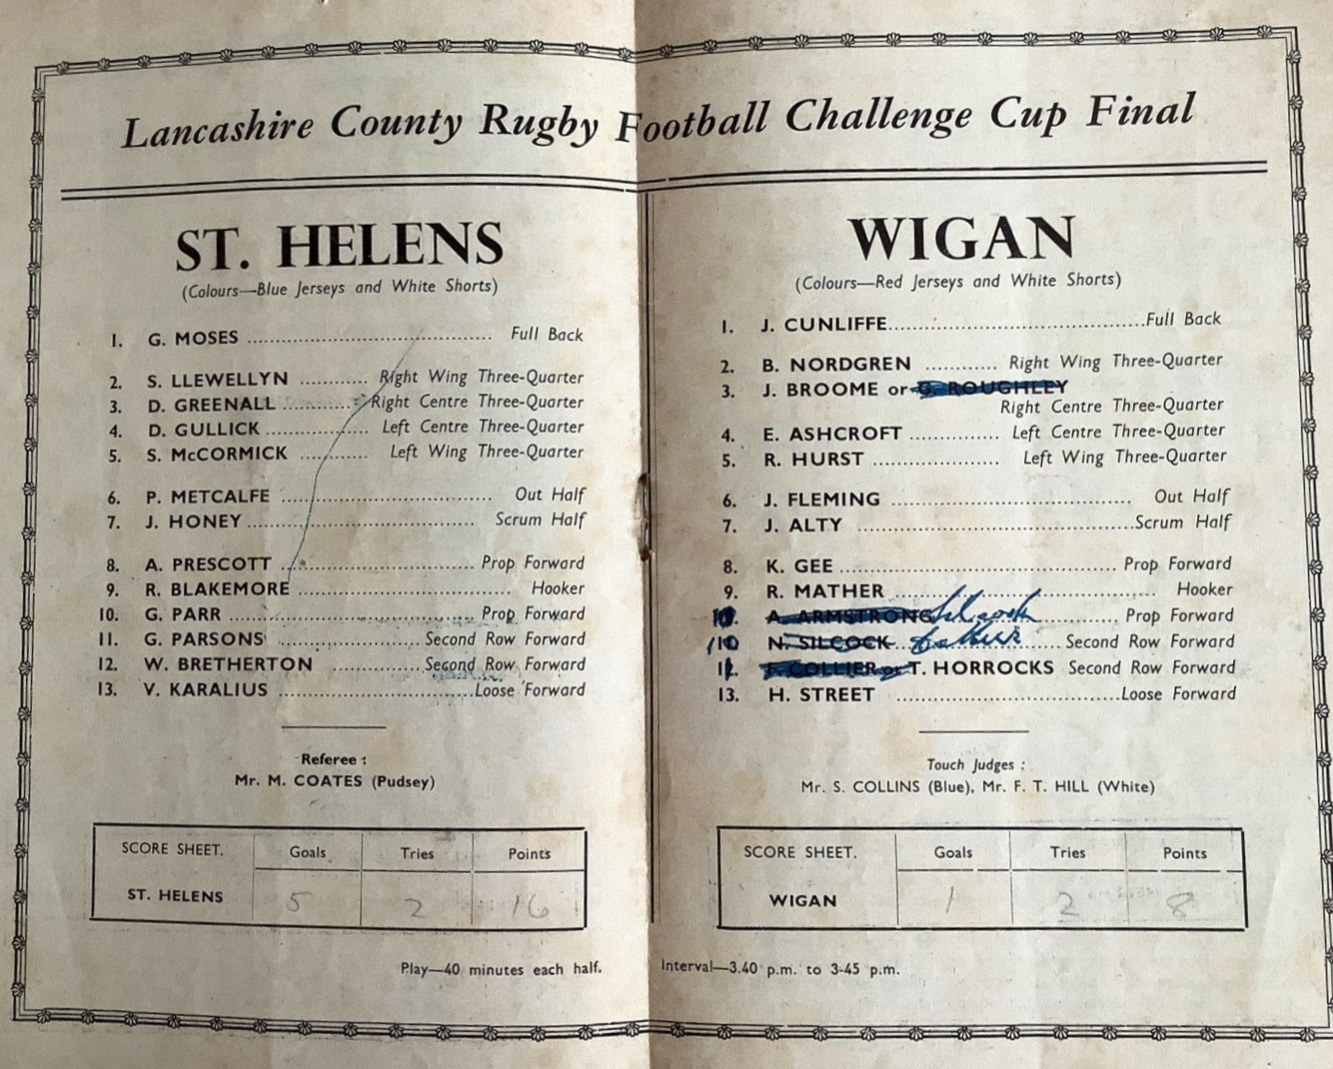 Lancashire County Rugby Football Challenge Cup Final
ST. HELENS
(Colours—Blue Jerseys and White Shorts)
1. G. MOSES ........ Full Back
2. S. LLEWELLYN ........ Right Wing Three-Quarter
3. D. GREENALL ........ Right Centre Three-Quarter
4. D. GULLICK ........ Left Centre Three-Quarter
5. S. McCORMICK ........ Left Wing Three-Quarter
6. P. METCALFE ........ Out Half
7. J. HONEY ........ Scrum Half
8. A. PRESCOTT ........ Prop Forward
9. R. BLAKEMORE ........ Hooker
10. G. PARR ........ Prop Forward
11. G. PARSONS ........ Second Row Forward
12. W. BRETHERTON ........ Second Row Forward
13. V. KARALIUS ........ Loose Forward
Referee :
Mr. M. COATES (Pudsey)
SCORE SHEET. Goals Tries Points
ST. HELENS 5 2 16
Play—40 minutes each half.
WIGAN
(Colours—Red Jerseys and White Shorts)
1. J. CUNLIFFE ........ Full Back
2. B. NORDGREN ........ Right Wing Three-Quarter
3. J. BROOME or G. ROUGHLEY
Right Centre Three-Quarter
4. E. ASHCROFT ........ Left Centre Three-Quarter
5. R. HURST ........ Left Wing Three-Quarter
6. J. FLEMING ........ Out Half
7. J. ALTY ........ Scrum Half
8. K. GEE ........ Prop Forward
9. R. MATHER ........ Hooker
A. ARMSTRONG Silcock ........ Prop Forward
N. SILCOCK ........ Second Row Forward
F. COLLIER or T. HORROCKS Second Row Forward
13. H. STREET ........ Loose Forward
Touch Judges :
Mr. S. COLLINS (Blue), Mr. F. T. HILL (White)
SCORE SHEET. Goals Tries Points
WIGAN 1 2 8
Interval—3.40 p.m. to 3-45 p.m.